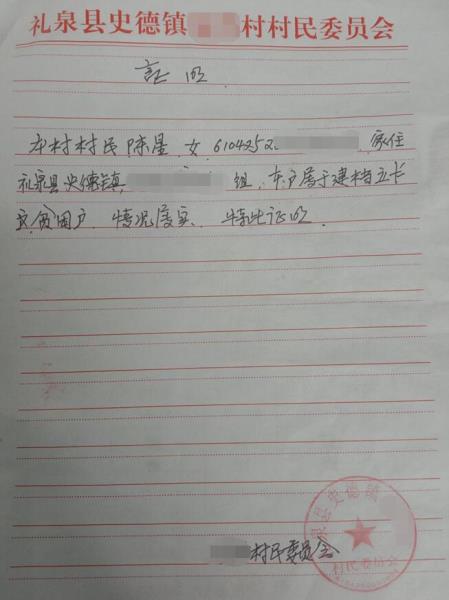 礼泉县史德镇 村村民委员会
证明
本村村民陈星,女,6104252 家住
礼泉县史德镇 组,本户属于建档立卡
贫困户,情况属实,特此证明.
村民委员会
泉县史德镇
村民委员会